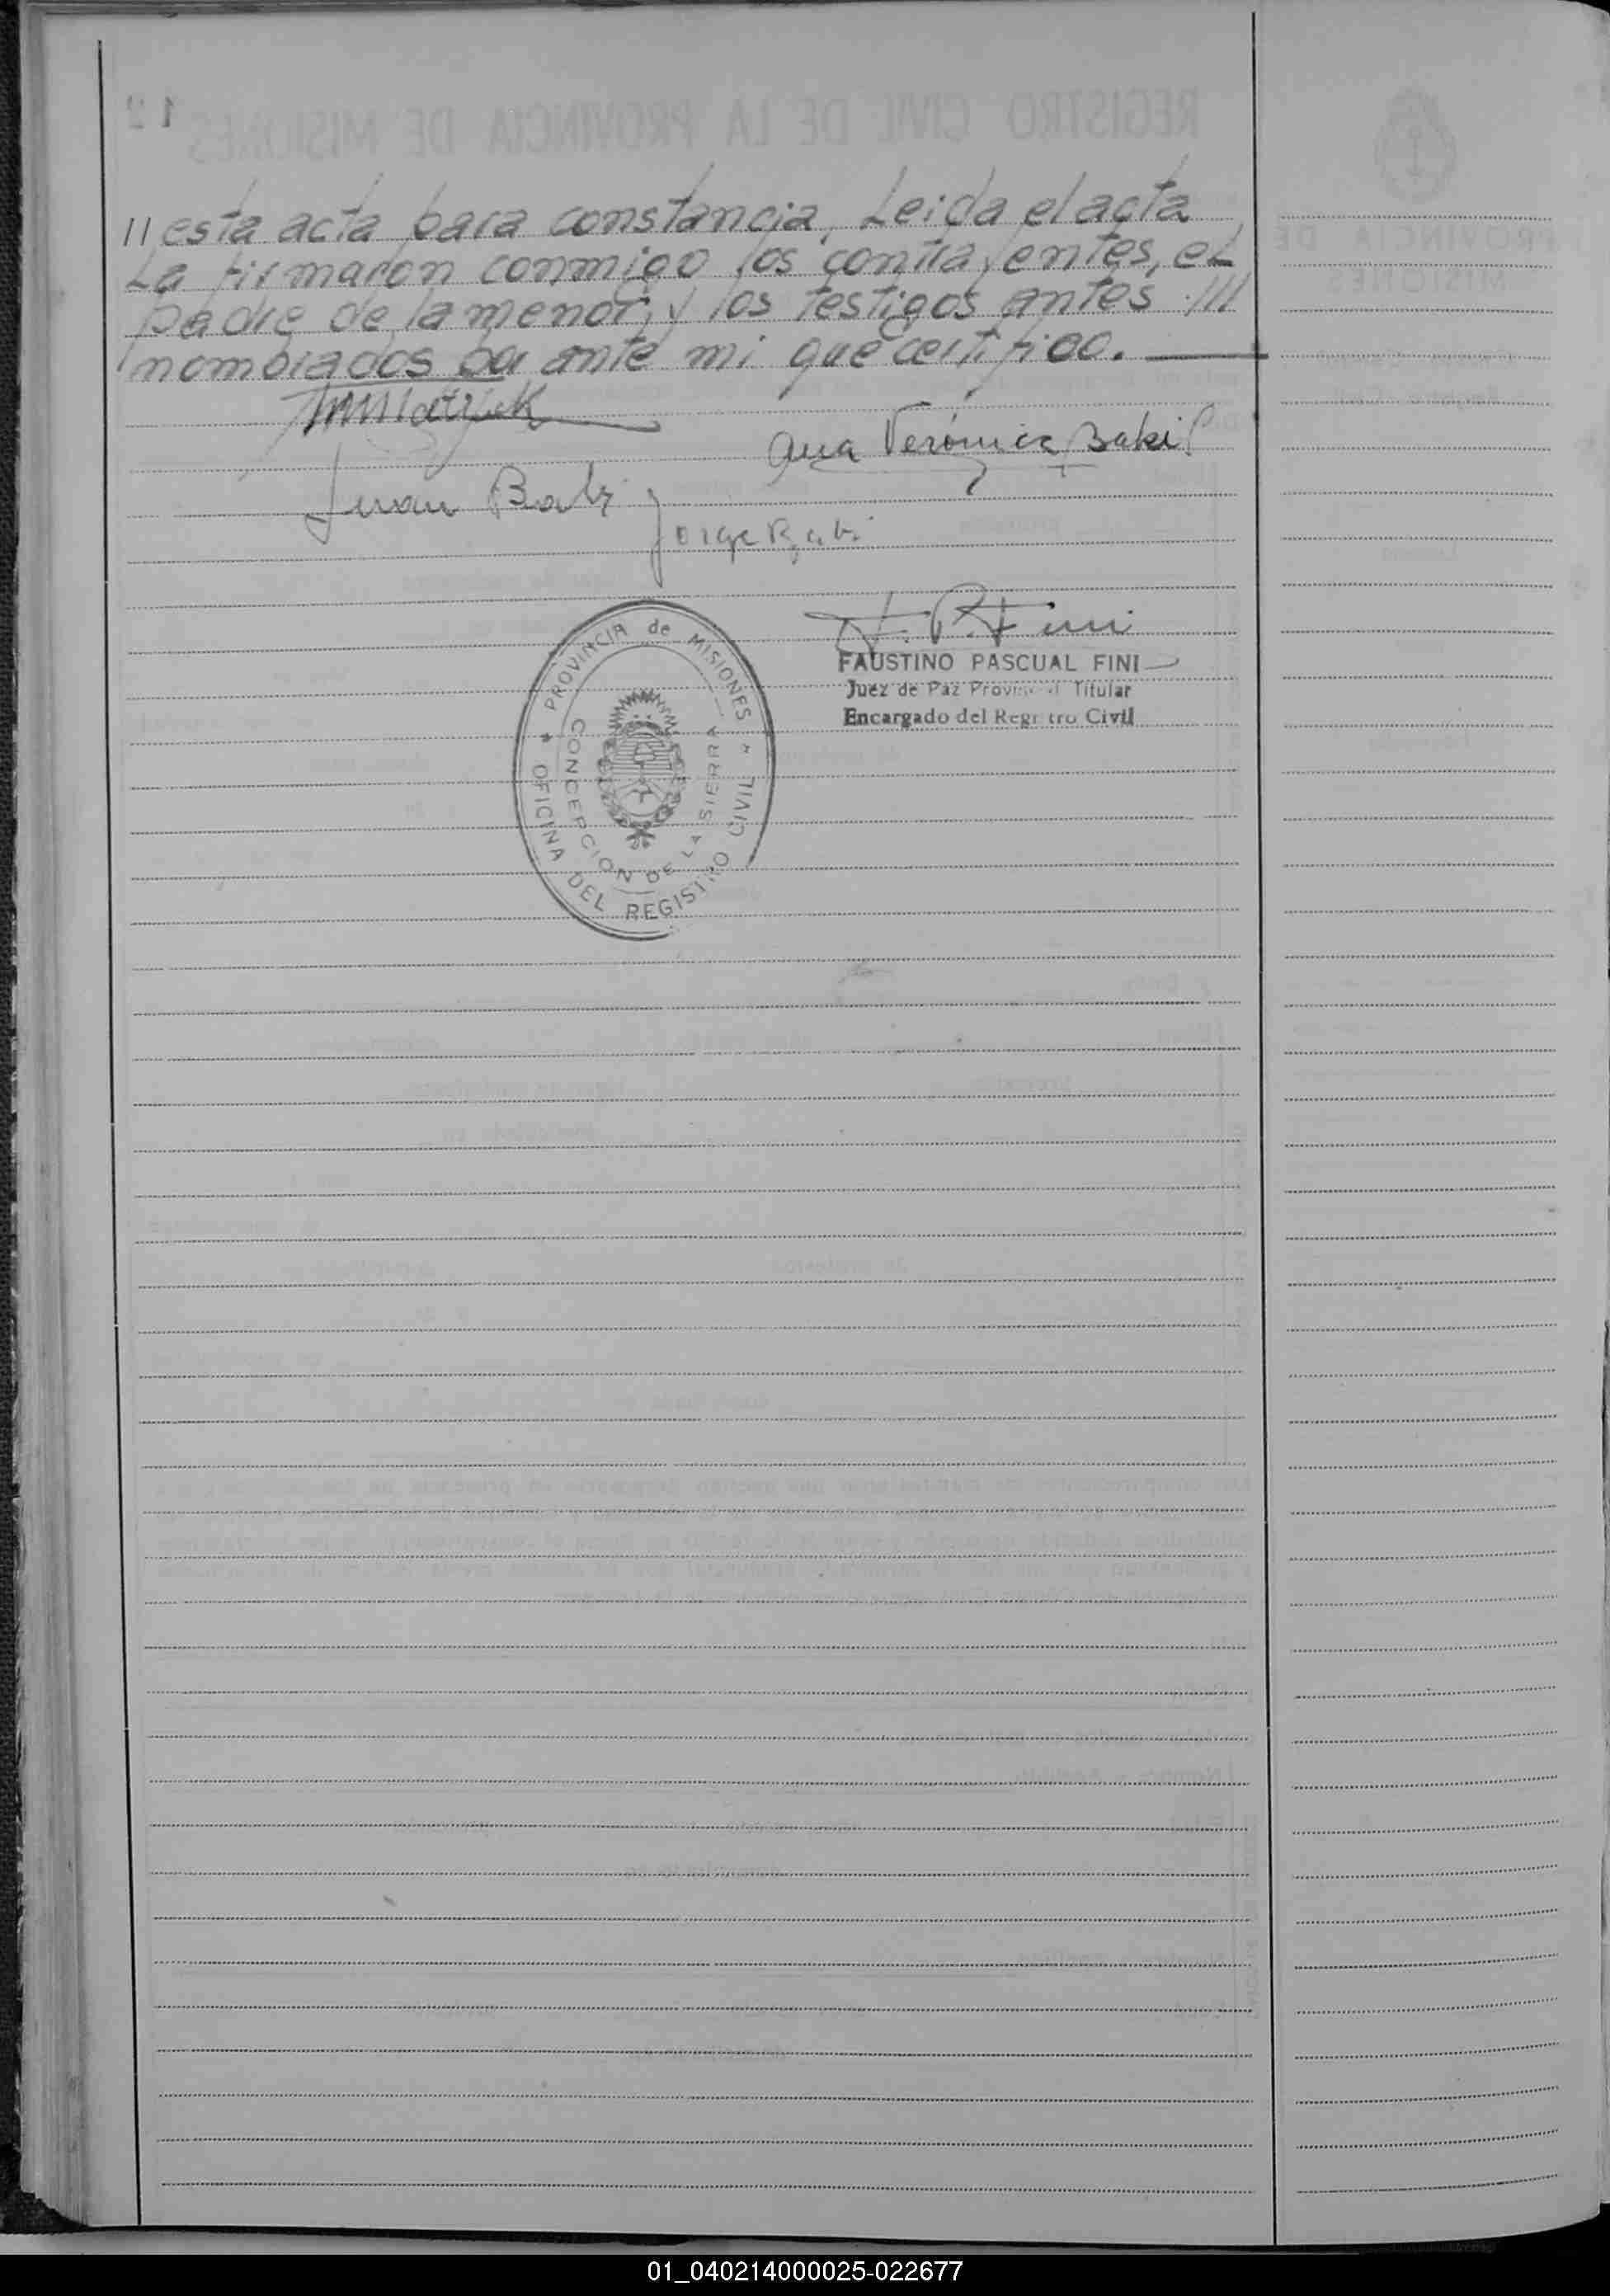 // esta acta para constancia, Leida el acta
La firmaron conmigo los contrayentes, el
padre de la menor, y los testigos antes ///
nombrados por ante mi que certifico.
Ana Verónica Baki
Juan Baki
Jorge Baki
F. P. Fini
FAUSTINO PASCUAL FINI
Juez de Paz Provincial Titular
Encargado del Registro Civil
PROVINCIA de MISIONES
OFICINA DEL REGISTRO CIVIL
CONCEPCION DE LA SIERRA
01_040214000025-022677